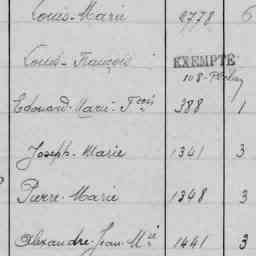 Louis-Marie 2778 6
Louis-François EXEMPTÉ
108-
Edouard-Marie-Fçois 388 1
Joseph-Marie 1341 3
Pierre-Marie 1348 3
Alexandre-Jean-Mie 1441 3